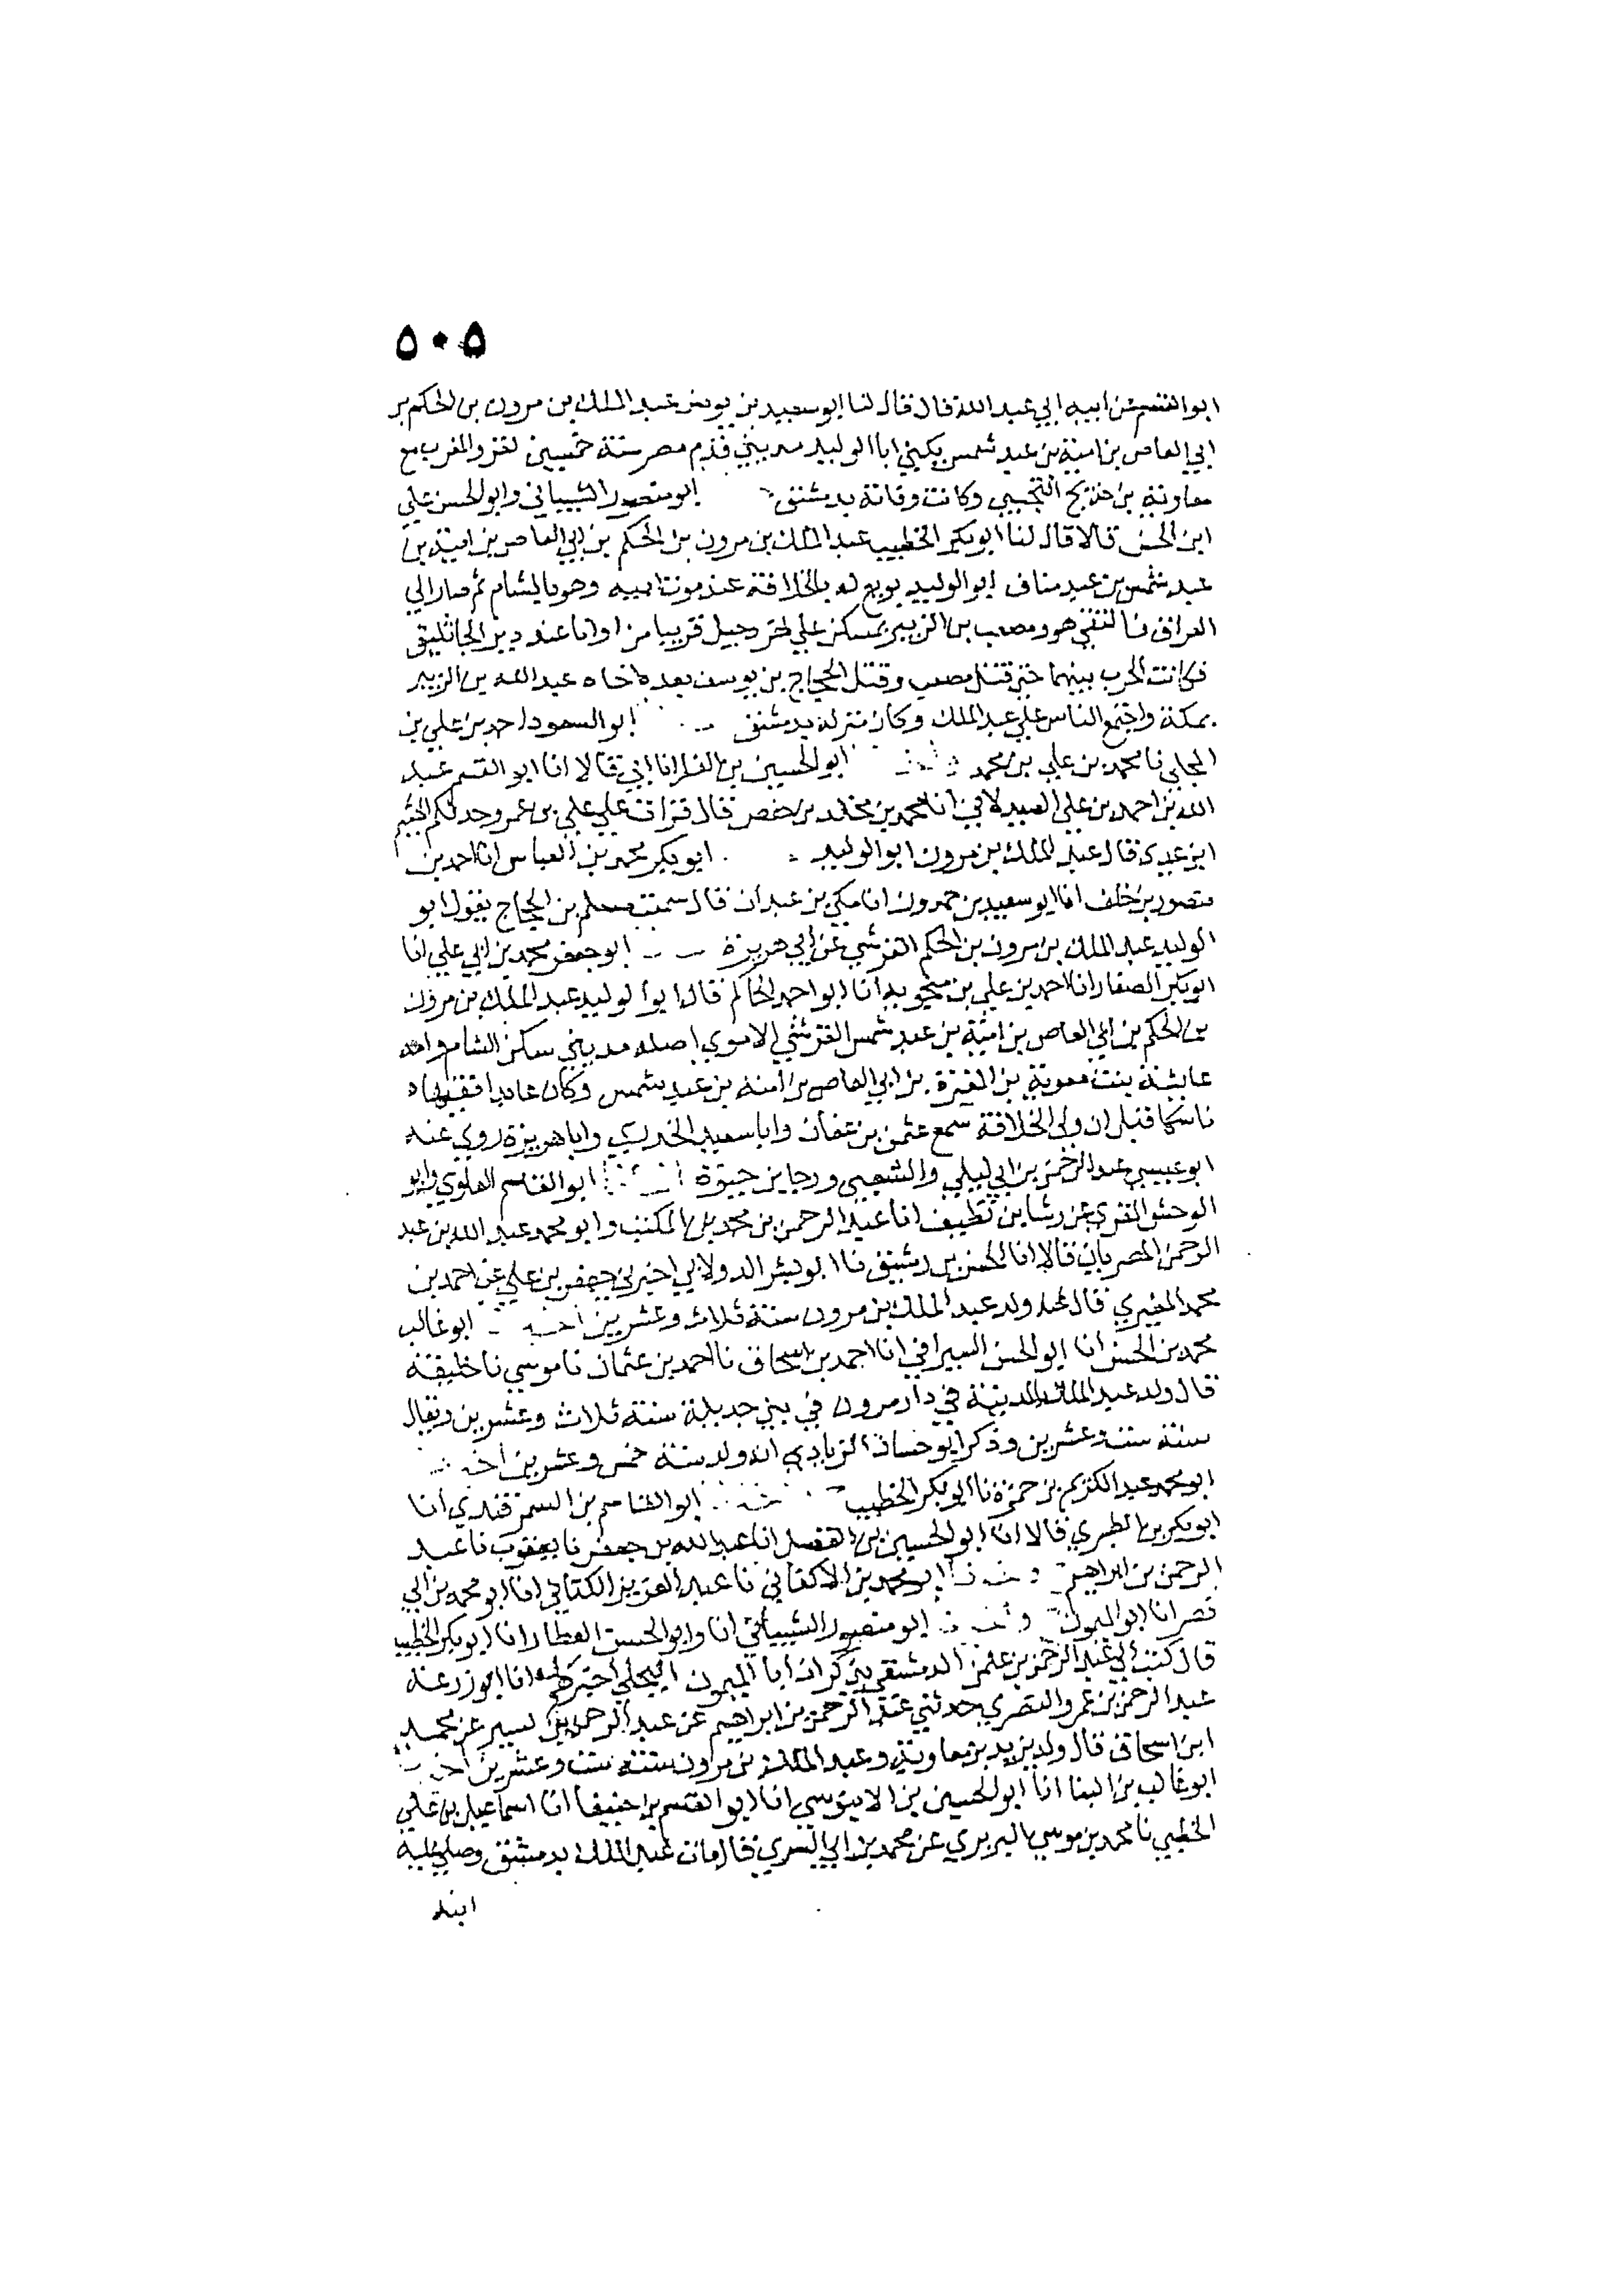 ٥٠٥
ابو القسم عن ابيه ابي عبد الله قال قال لنا ابو سعيد بن يونس عبد الملك بن مرون بن الحكم بن
ابي العاص بن امية بن عبد شمس يكني ابا الوليد مديني قدم مصر سنة خمسين لغزو المغرب مع
معاوية بن خديج التجيبي وكانت وفاته بدمشق ابو منصور الشيباني وابو الحسن علي
ابن الحسن قالا قال لنا ابو بكر الخطيب عبد الملك بن مرون بن الحكم بن ابي العاص بن امية بن
عبد شمس بن عبد مناف ابو الوليد بويع له بالخلافة عند موت ابيه وهو بالشام ثم صار الي
العراق فالتقي هو ومصعب بن الزبير بمسكن علي نهر دجيل قريبا من اوانا عند دير الجاثليق
فكانت الحرب بينهما حتي قتل مصعب وقتل الحجاج بن يوسف بعده اخاه عبد الله بن الزبير
بمكة واجتمع الناس علي عبد الملك وكان منزله بدمشق ابو السعود احمد بن علي بن
المجلي نا محمد بن علي بن محمد ابو الحسين بن الفرا انا ابي قالا انا ابو القسم عبد
الله بن احمد بن علي الصيدلاني انا محمد بن مخلد بن حفص قال قرات علي علي بن عمرو حدثكم الهيثم
ابن عدي قال عبد الملك بن مرون ابو الوليد ابو بكر محمد بن العباس انا احمد بن
منصور بن خلف انا ابو سعيد بن حمدون انا مكي بن عبدان قال سمعت مسلم بن الحجاج يقول ابو
الوليد عبد الملك بن مرون بن الحكم القرشي عن ابي هريرة ابو جعفر محمد بن ابي علي انا
ابو بكر الصفار انا احمد بن علي بن منجويه انا ابو احمد الحاكم قال ابو الوليد عبد الملك بن مرون
بن الحكم بن ابي العاص بن امية بن عبد شمس القرشي الاموي اصله مديني سكن الشام وامه
عايشة بنت معوية بن المغيرة بن ابي العاص بن امية بن عبد شمس وكان عابدا
ناسكا قبل ان ولي الخلافة سمع عثمن بن عفان وابا سعيد الخدري وابا هريرة روي عنه
ابو عيسي عبد الرحمن بن ابي ليلي والشعبي ورجا بن حيوة ابو القاسم العلوي وابو
الوحش المقري عن رشا بن نظيف انا عبد الرحمن بن محمد المكتب وابو محمد عبد الله بن عبد
الرحمن المصريان قالا انا الحسن بن رشيق نا ابو بشر الدولابي اخبرني جعفر بن علي عن احمد بن
محمد قال ولد عبد الملك بن مرون سنة ثلاث وعشرين ابو غالب
محمد بن الحسن انا ابو الحسن السيرافي انا احمد بن اسحاق نا احمد بن عثمان نا موسي نا خليفة
قال ولد عبد الملك بالمدينة في دار مرون في بني جديلة سنة ثلاث وعشرين ويقال
سنة ستة عشرين وذكر ابو حسان الزيادي انه ولد سنة خمس وعشرين
ابو محمد عبد الكريم بن حمزة نا ابو بكر الخطيب ابو القاسم بن السمرقندي انا
ابو بكر بن الطبري قالا انا ابو الحسين بن الفضل انا عبد الله بن جعفر نا يعقوب نا عبد
الرحمن بن ابراهيم ابو محمد بن الاكفاني نا عبد العزيز الكتاني انا ابو محمد بن ابي
نصر انا ابو الميمون ابو منصور الشيباني انا وابو الحسن العطار انا ابو بكر الخطيب
قال كتب الي عبد الرحمن بن عثمن الدمشقي يذكر ان ابا الميمون البجلي اخبرهم انا ابو زرعة
عبد الرحمن بن عمرو النصري حدثني عبد الرحمن بن ابراهيم عن عبد الرحمن بن بشير عن محمد
ابن اسحاق قال ولد يزيد بن معاوية وعبد الملك بن مرون سنة ست وعشرين
ابو غالب بن البنا انا ابو الحسين بن الابنوسي انا ابو القسم بن حنيفا انا اسماعيل بن علي
الخطبي نا محمد بن موسي البربري عن محمد بن ابي السري قال مات عبد الملك بدمشق وصلي عليه
ابنه